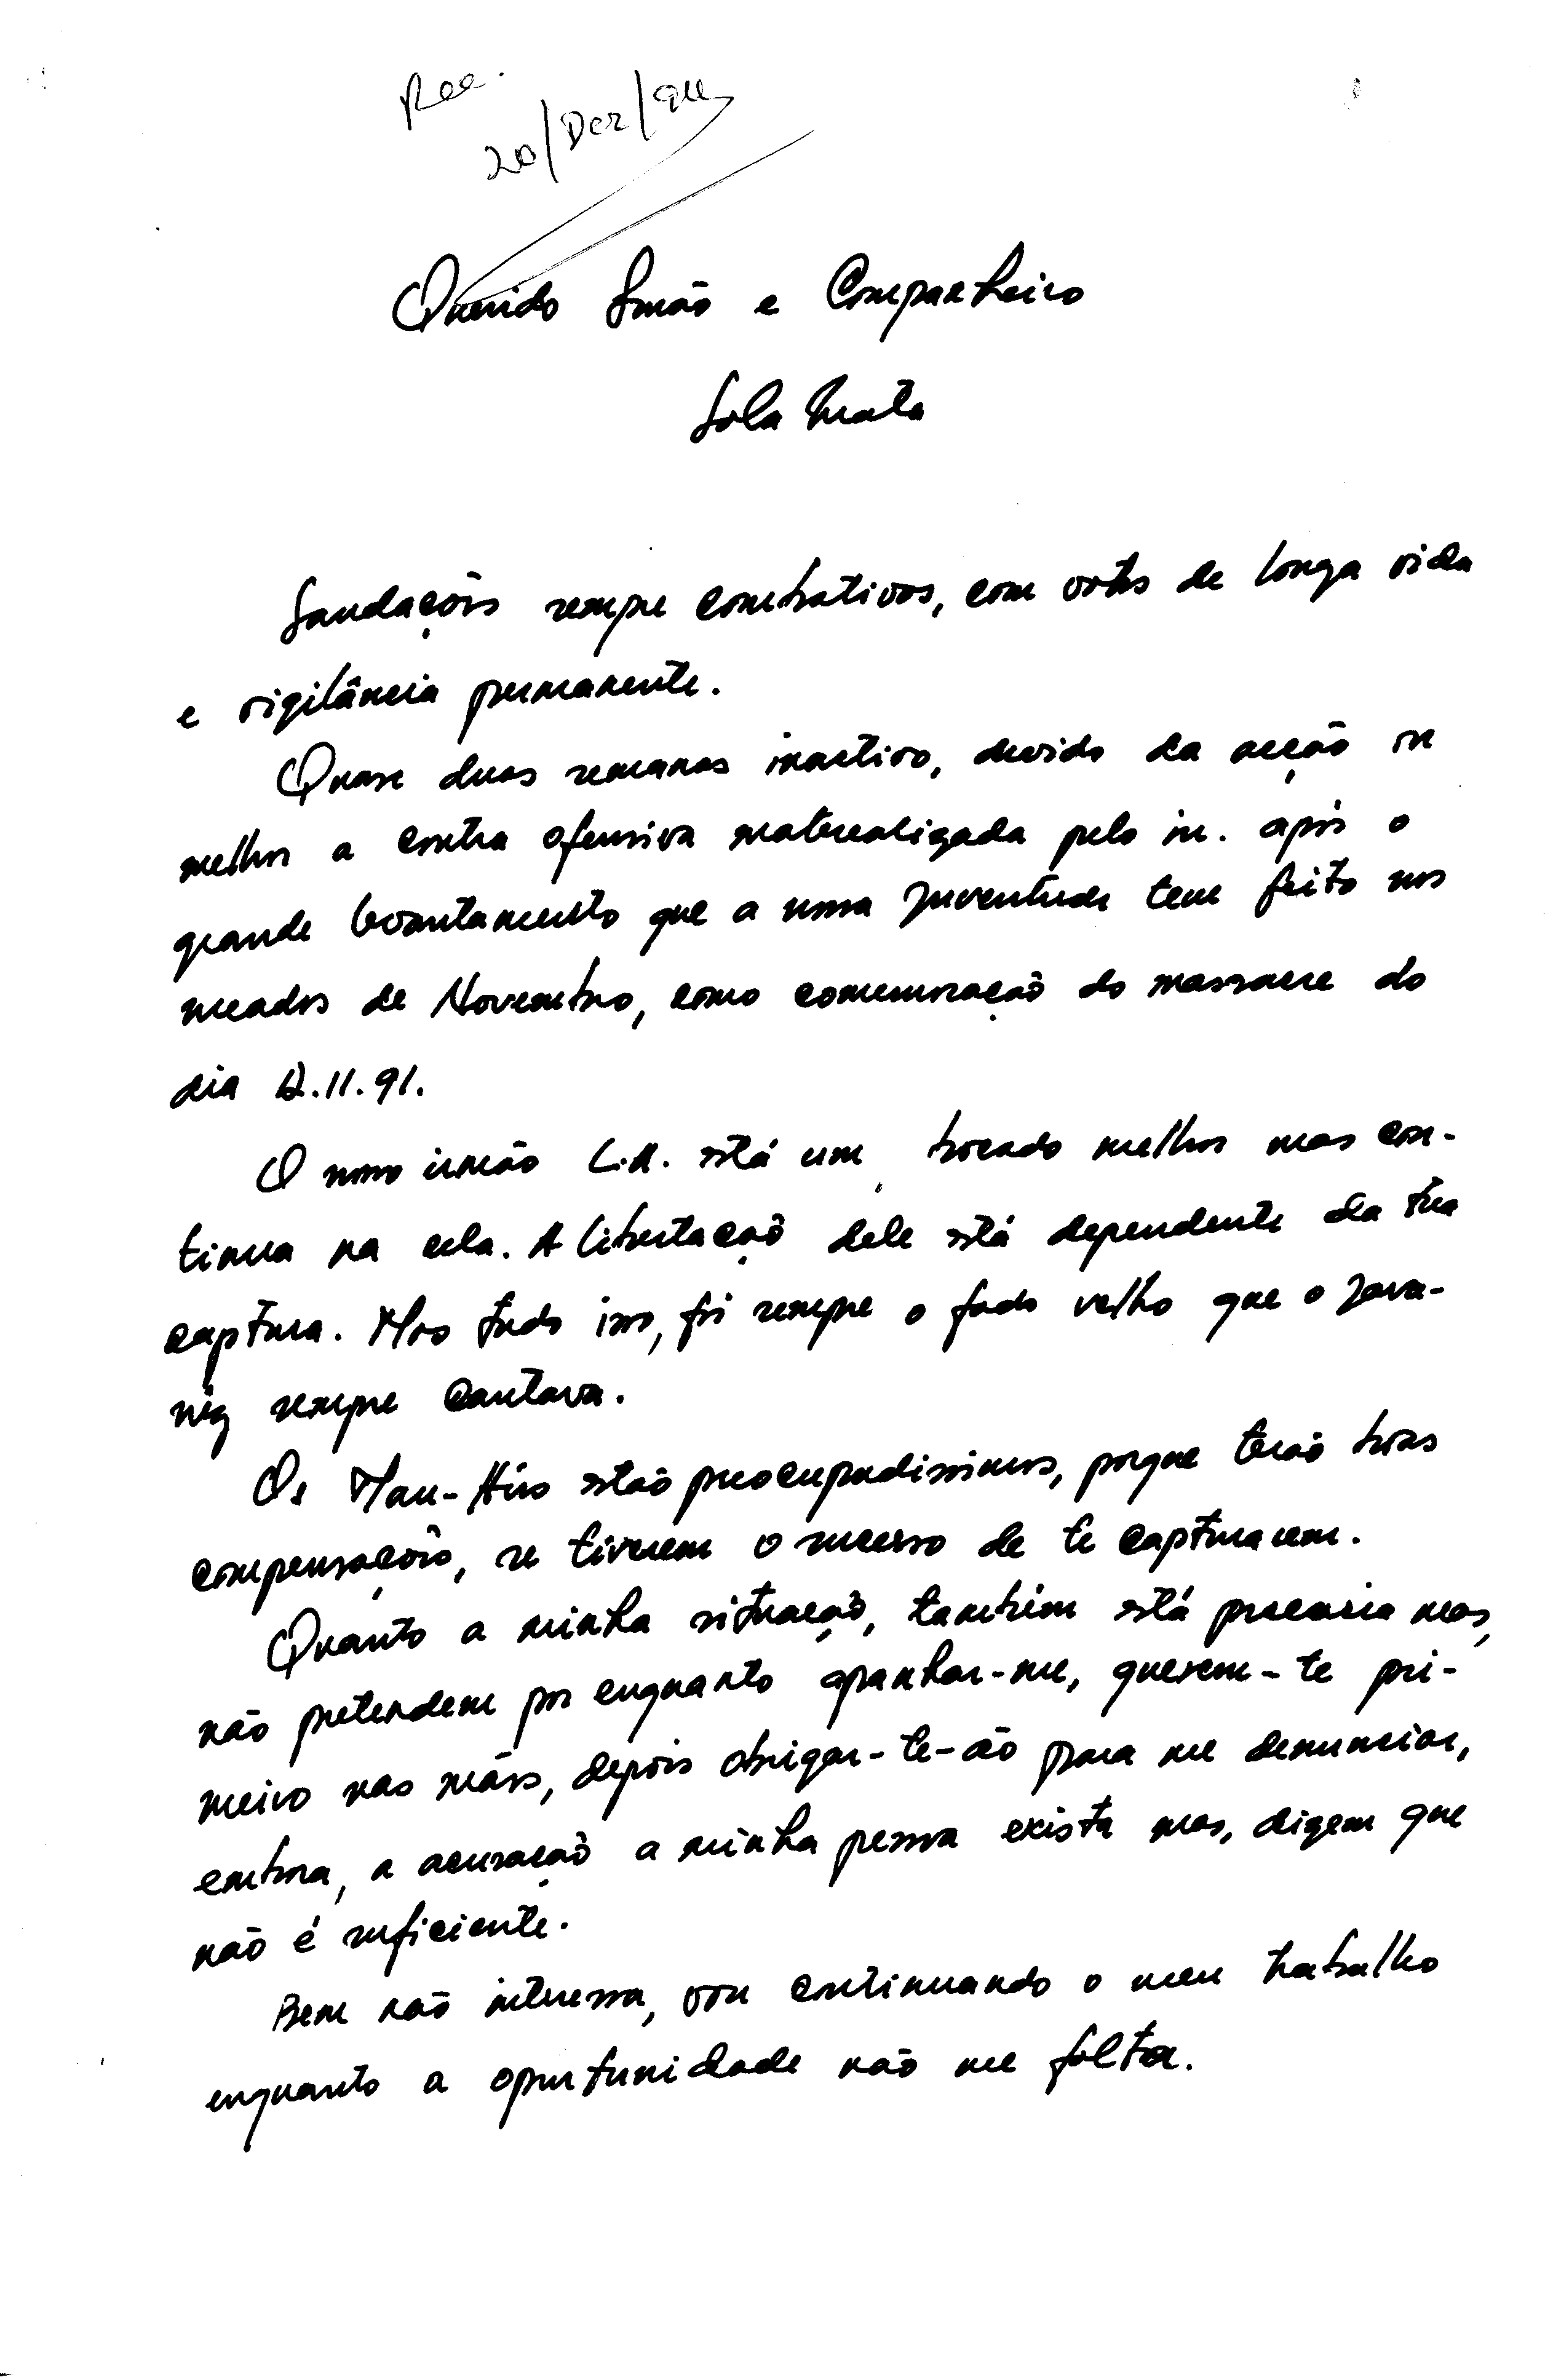 Rec.
20/Dez/94
Querido Irmão e Companheiro
Sola Mata
Saudações sempre combativas, com votos de longa vida
e vigilância permanente.
Quase duas semanas inactivo, devido da acção ou
melhor a contra ofensiva materealizada pelo in. após o
grande levantamento que a nossa Juventude tem feito nos
meados de Novembro, como comemoração do massacre do
dia 12.11.91.
O nosso irmão L.A. está um bocado melhor mas con-
tinua na cela. A libertação dele está dependente da tua
captura. Mas tudo isso, foi sempre o fado velho que o Java-
niz sempre cantava.
Os Mau-Híro estão preocupadissimos, porque terão boas
compensações, se tiverem o sucesso de te capturarem.
Quanto a minha situação, também está precaria mas,
não pretendem por enquanto apanhar-me, querem-te pri-
meiro nas mãos, depois obrigar-te-ão para me denunciar,
embora, a acusação a minha pessoa exista mas, dizem que
não é suficiente.
Bem não interessa, vou continuando o meu trabalho
enquanto a oportunidade não me falta.